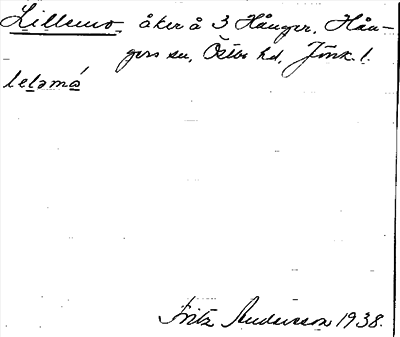 Lillemo åker å 3 Hånger, Hån-
gers sn, Östbo hd, Jönk. l.
leləmó
Fritz Andersson 1938.